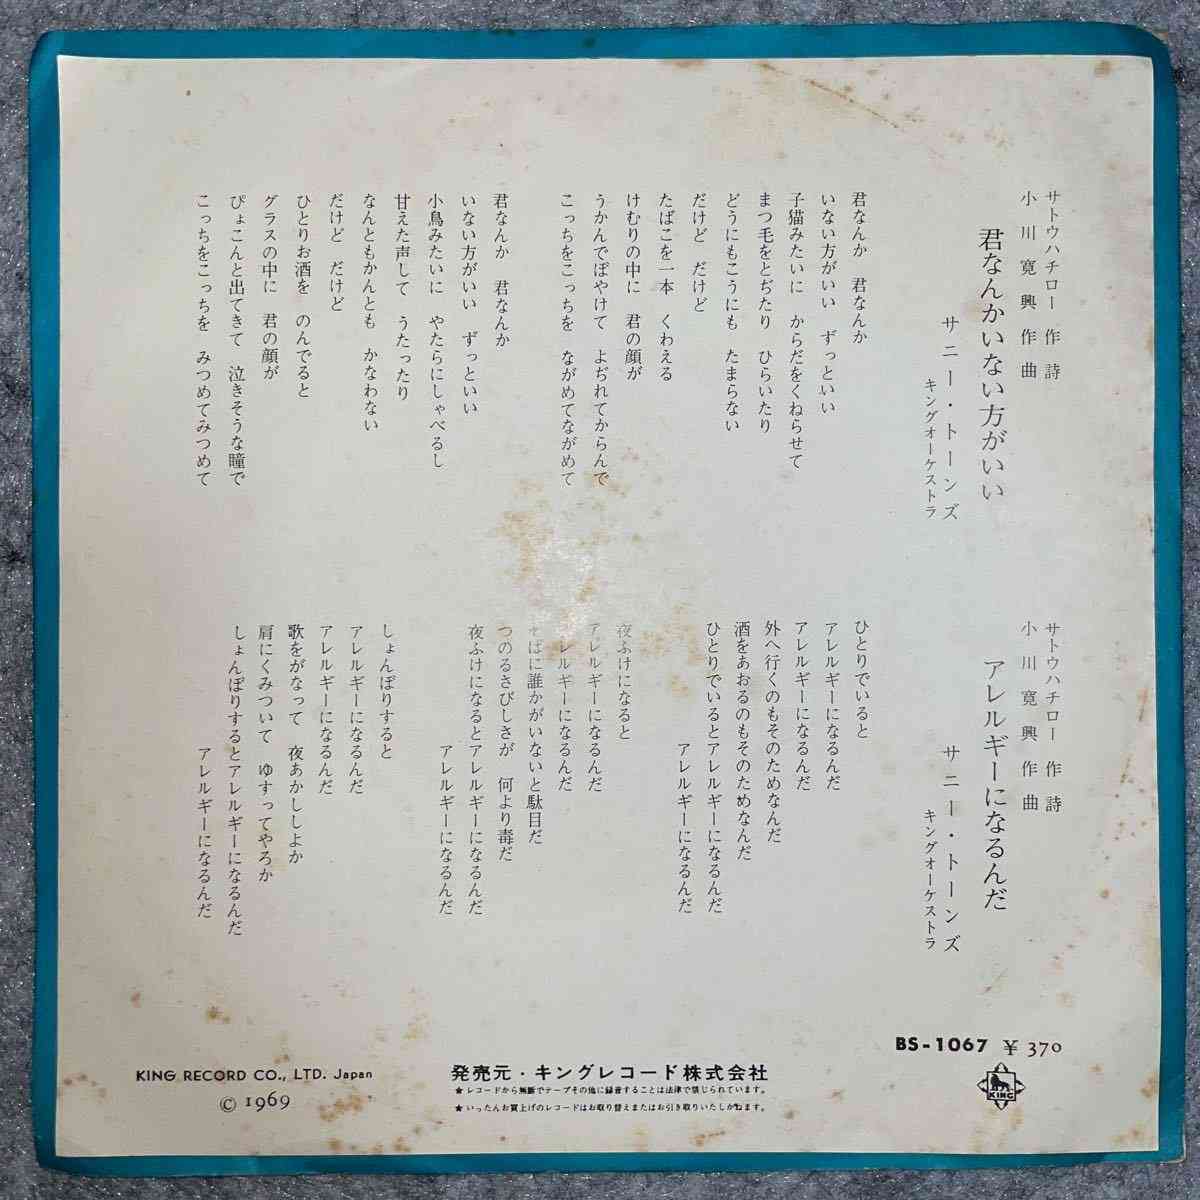 サトウハチロー 作詩
小川寛興 作曲
君なんかいない方がいい
サニー・トーンズ
キングオーケストラ
君なんか 君なんか
いない方がいい ずっといい
子猫みたいに からだをくねらせて
まつ毛をとぢたり ひらいたり
どうにもこうにも たまらない
だけど だけど
たばこを一本 くわえる
けむりの中に 君の顔が
うかんでぼやけて よぢれてからんで
こっちをこっちを ながめてながめて
君なんか 君なんか
いない方がいい ずっといい
小鳥みたいに やたらにしゃべるし
甘えた声して うたったり
なんともかんとも かなわない
だけど だけど
ひとりお酒を のんでると
グラスの中に 君の顔が
ぴょこんと出てきて 泣きそうな瞳で
こっちをこっちを みつめてみつめて
サトウハチロー 作詩
小川寛興 作曲
アレルギーになるんだ
サニー・トーンズ
キングオーケストラ
ひとりでいると
アレルギーになるんだ
アレルギーになるんだ
外へ行くのもそのためなんだ
酒をあおるのもそのためなんだ
ひとりでいるとアレルギーになるんだ
アレルギーになるんだ
夜ふけになると
アレルギーになるんだ
アレルギーになるんだ
そばに誰かがいないと駄目だ
つのるさびしさが 何より毒だ
夜ふけになるとアレルギーになるんだ
アレルギーになるんだ
しょんぼりすると
アレルギーになるんだ
アレルギーになるんだ
歌をがなって 夜あかししよか
肩にくみついて ゆすってやろか
しょんぼりするとアレルギーになるんだ
アレルギーになるんだ
BS-1067 ¥370
KING RECORD CO., LTD. Japan
© 1969
発売元・キングレコード株式会社
★レコードから無断でテープその他に録音することは法律で禁じられています。
★いったんお買上げのレコードはお取り替えまたはお引き取りいたしかねます。
KING